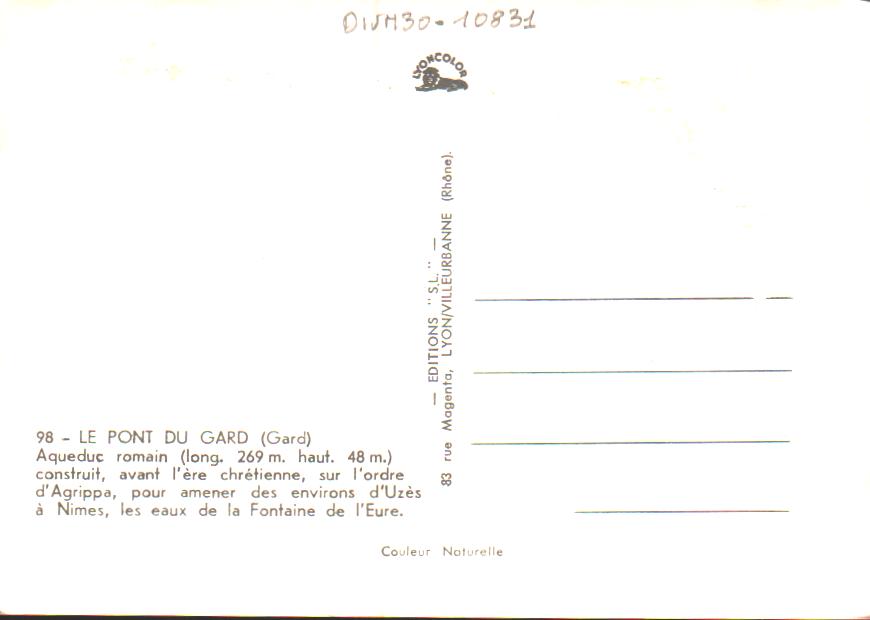 DIVM30-10831
LYONCOLOR
— EDITIONS "S.L." —
83 rue Magenta, LYON/VILLEURBANNE (Rhône).
98 - LE PONT DU GARD (Gard)
Aqueduc romain (long. 269 m. haut. 48 m.)
construit, avant l'ère chrétienne, sur l'ordre
d'Agrippa, pour amener des environs d'Uzès
à Nimes, les eaux de la Fontaine de l'Eure.
Couleur Naturelle